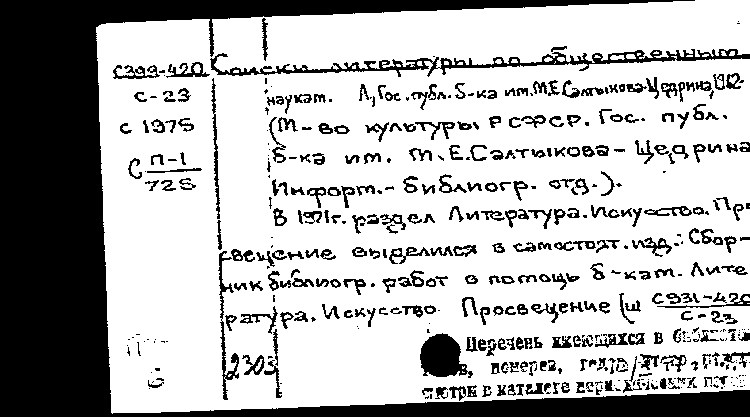 С393-420 Списки литературы по общественным
С-23 наукам. Л, Гос. публ. б-ка им. М.Е. Салтыкова-Щедрина, 1962-
С 1975 (М-во культуры РСФСР. Гос. публ.
С П-1/728 б-ка им. М.Е. Салтыкова-Щедрина
Информ.-библиогр. отд.).
В 1971г. раздел Литература. Искусство. Про
свещение выделился в самостоят. изд.: Сбор-
ник библиогр. работ в помощь б-кам. Лите
ратура. Искусство Просвещение (ш С931-420/С-23
Перечень имеющихся в библиоте
2303 номеров,
смотри в каталоге периодических
6